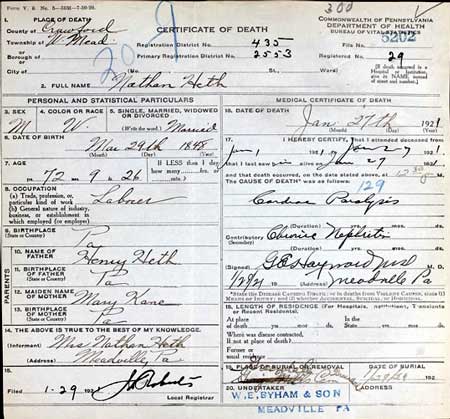 Form V. S. No. 5
300
1. PLACE OF DEATH
County of Crawford
Township of W. Mead
or
Borough of
or
City of
CERTIFICATE OF DEATH
Registration District No. 435
Primary Registration District No. 2553
(No. St., Ward)
COMMONWEALTH OF PENNSYLVANIA
DEPARTMENT OF HEALTH
BUREAU OF VITAL STATISTICS
File No. 5202
Registered No. 29
[If death occurred in a Hospital or Institution, give its NAME, instead of street and number.]
209
2. FULL NAME Nathan Heth
PERSONAL AND STATISTICAL PARTICULARS
3. SEX
M
4. COLOR OR RACE
W.
5. SINGLE, MARRIED, WIDOWED
OR DIVORCED
(Write the word) Married
6. DATE OF BIRTH
Mar 29th 1848
(Month) (Day) (Year)
7. AGE
If LESS than
1 day
72 9 26
yrs. mos. ds.
8. OCCUPATION
(a) Trade, profession, or
particular kind of work Laborer
(b) General nature of industry,
business, or establishment in
which employed (or employer)
9. BIRTHPLACE
(State or Country) Pa
PARENTS
10. NAME OF
FATHER Henry Heth
11. BIRTHPLACE
OF FATHER Pa
12. MAIDEN NAME
OF MOTHER Mary Kane
13. BIRTHPLACE
OF MOTHER Pa
14. THE ABOVE IS TRUE TO THE BEST OF MY KNOWLEDGE.
(Informant) Mrs Nathan Heth
(Address) Meadville, Pa
15.
1-29 192
Local Registrar
MEDICAL CERTIFICATE OF DEATH
16. DATE OF DEATH
Jan 27th 1921
(Month) (Day) (Year)
17. I HEREBY CERTIFY, That I attended deceased from
that I last saw h alive on Jan 27 1921
and that death occurred, on the date stated above, at M.
The CAUSE OF DEATH was as follows:
129
Cardiac Paralysis
(Duration) yrs. mos. ds.
Contributory Chronic Nephritis
(Secondary)
(Duration) yrs. mos. ds.
(Signed) M. D.
(Address) Meadville Pa
18. LENGTH OF RESIDENCE (For Hospitals, Institutions, Transients
or Recent Residents).
At place
of death yrs. mos. ds.
Where was disease contracted,
if not at place of death?
Former or
usual residence
19. PLACE OF BURIAL OR REMOVAL
DATE OF BURIAL
20. UNDERTAKER
ADDRESS
W. E. BYHAM & SON
MEADVILLE PA